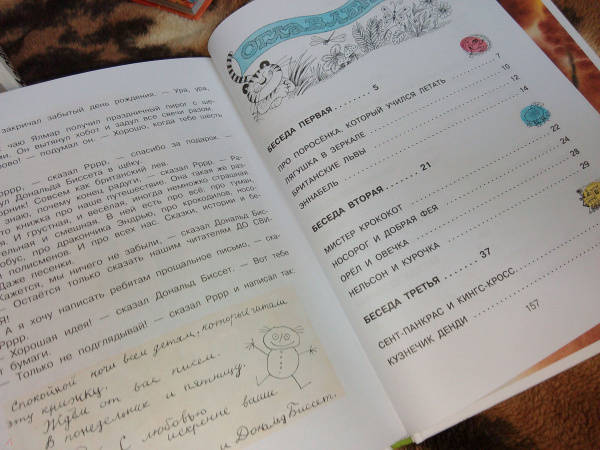 закричал забытый день рождения. — Ура, ура,
чаю Ялмар получил праздничный пирог с ше-
Он вытянул хобот и задул все свечи разом.
— подумал он. — Хорошо, когда тебе шесть
Рррр, — сказал Рррр, — спасибо за подарок. —
Дональда Биссета в щёку.
Совсем как британский лев.
знаю, почему конец радуги, — сказал Рррр. — Ра-
книжка про наше путешествие. Она такая же раз-
И грустная, и весёлая, иногда немножко страшная
и смешная. В ней есть про всё, про туман,
про дракончика Эндрью, про крокодилов, носо-
полисменов. И про всех нас. Сказки, истории и бе-
Даже песенки.
Кажется, мы ничего не забыли, — сказал Дональд Бис-
— Остаётся только сказать нашим читателям ДО СВИ-
— А я хочу написать ребятам прощальное письмо, — ска-
Рррр.
— Хорошая идея! — сказал Дональд Биссет. — Вот тебе
бумаги.
— Только не подглядывай! — сказал Рррр и написал так:
Спокойной ночи всем детям, которые читали
эту книжку.
Ждём от вас писем.
В понедельник и пятницу.
С любовью
искренне ваши
и Дональд Биссет.
ОГЛАВЛЕНИЕ
БЕСЕДА ПЕРВАЯ . . . . . . . 5
ПРО ПОРОСЁНКА, КОТОРЫЙ УЧИЛСЯ ЛЕТАТЬ . . . 7
ЛЯГУШКА В ЗЕРКАЛЕ . . . 10
БРИТАНСКИЕ ЛЬВЫ . . . 12
ЭННАБЕЛЬ . . . 14
БЕСЕДА ВТОРАЯ . . . . . . . 21
МИСТЕР КРОКОКОТ . . . 22
НОСОРОГ И ДОБРАЯ ФЕЯ . . . 24
ОРЁЛ И ОВЕЧКА . . . 28
НЕЛЬСОН И КУРОЧКА . . . 29
БЕСЕДА ТРЕТЬЯ . . . . . . . 37
СЕНТ-ПАНКРАС И КИНГС-КРОСС . . .
КУЗНЕЧИК ДЕНДИ . . .
157